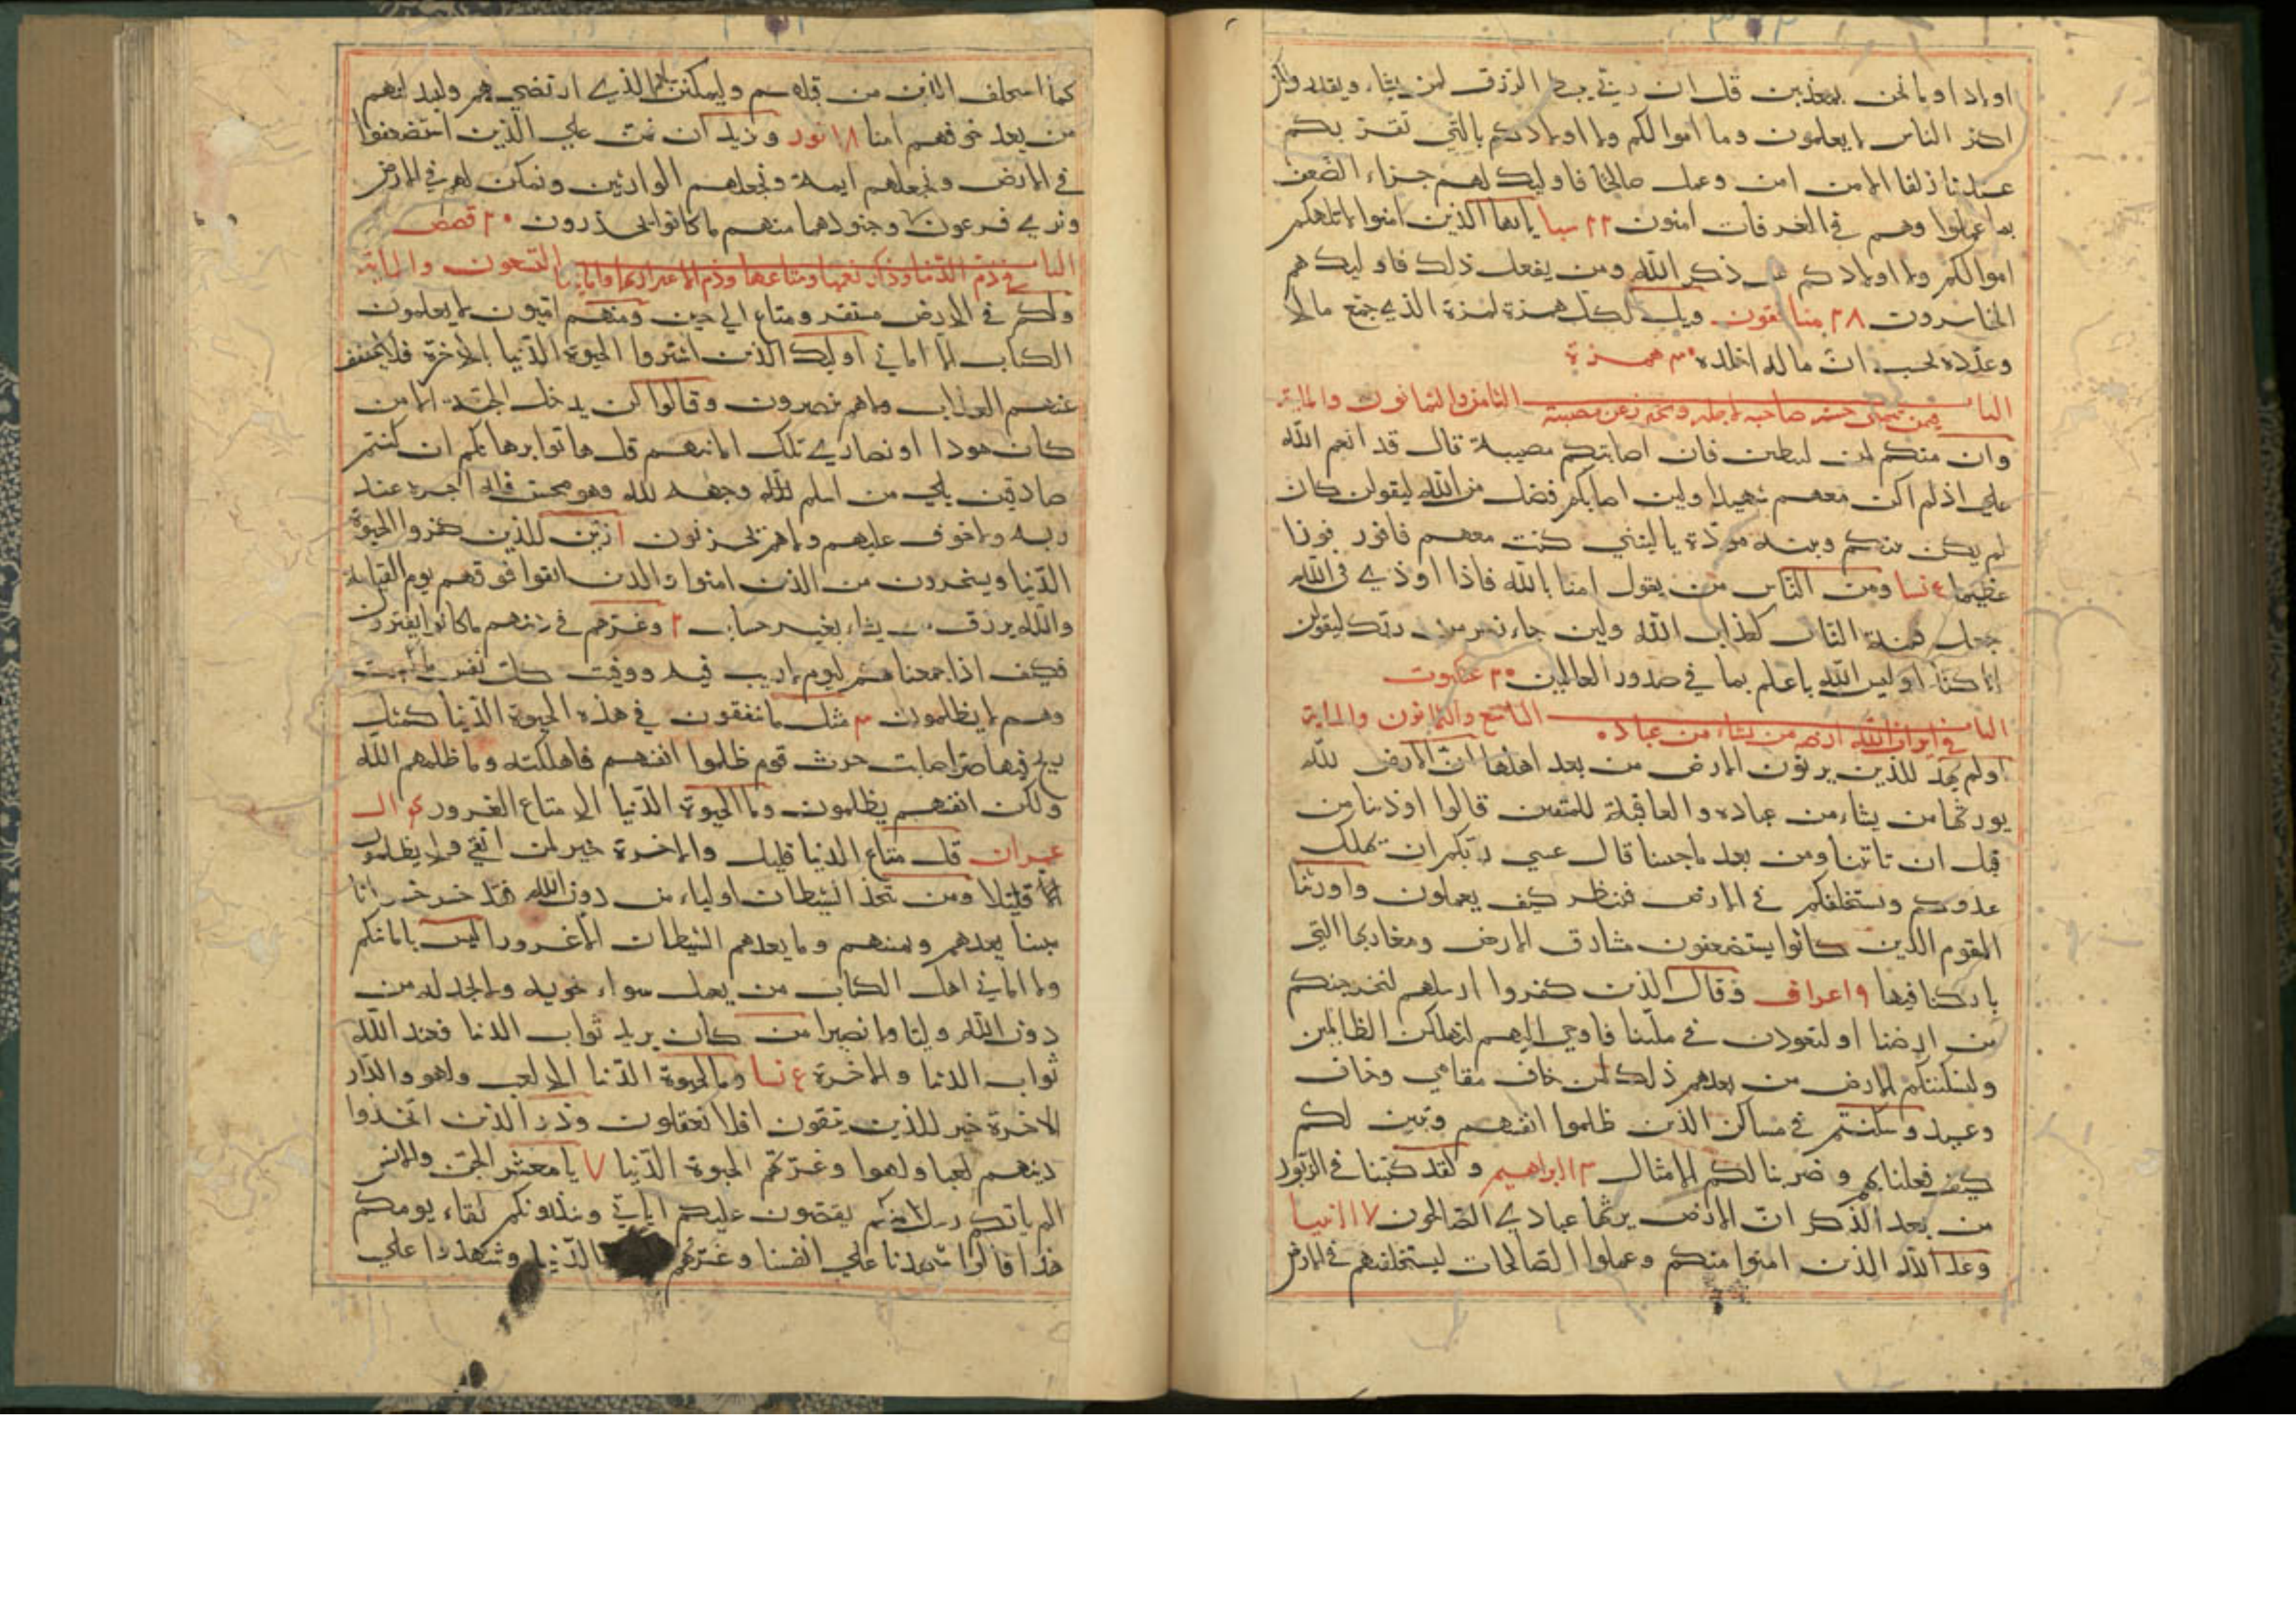 اولادا وما نحن بمعذبين قل ان ربي يبسط الرزق لمن يشاء ويقدر ولكن
اكثر الناس لا يعلمون وما اموالكم ولا اولادكم بالتي تقربكم
عندنا زلفا الا من امن وعمل صالحا فاوليك لهم جزاء الضعف
بما عملوا وهم في الغرفات امنون ٢٢ سبا يا ايها الذين امنوا لا تلهكم
اموالكم ولا اولادكم عن ذكر الله ومن يفعل ذلك فاوليك هم
الخاسرون ٢٨ منافقون ويل لكل همزة لمزة الذي جمع مالا
وعدده يحسب ان ماله اخلده ٣٠ همزة
الباب الثامن والثمانون والماية
وان منكم لمن ليبطين فان اصابتكم مصيبة قال قد انعم الله
علي اذ لم اكن معهم شهيدا ولين اصابكم فضل من الله ليقولن كان
لم يكن بينكم وبينه مودة يا ليتني كنت معهم فافوز فوزا
عظيما ٤ نسا ومن الناس من يقول امنا بالله فاذا اوذي في الله
جعل فتنة الناس كعذاب الله ولين جاء نصر من ربك ليقولن
انا كنا اوليس الله باعلم بما في صدور العالمين ٢٠ عنكبوت
الباب التاسع والثمانون والماية
في ايراث الله ارضه من يشاء من عباده
اولم يهد للذين يرثون الارض من بعد اهلها ان الارض لله
يورثها من يشاء من عباده والعاقبة للمتقين قالوا اوذينا من
قبل ان تاتينا ومن بعد ما جيتنا قال عسي ربكم ان يهلك
عدوكم ويستخلفكم في الارض فينظر كيف يعملون واورثنا
القوم الذين كانوا يستضعفون مشارق الارض ومغاربها التي
باركنا فيها ٩ اعراف وقال الذين كفروا لرسلهم لنخرجنكم
من ارضنا او لتعودن في ملتنا فاوحي اليهم لنهلكن الظالمين
ولنسكننكم الارض من بعدهم ذلك لمن خاف مقامي وخاف
وعيد وسكنتم في مساكن الذين ظلموا انفسهم وتبين لكم
كيف فعلنا بهم وضربنا لكم الامثال ١٣ ابراهيم ولقد كتبنا في الزبور
من بعد الذكر ان الارض يرثها عبادي الصالحون ١٧ الانبيا
وعد الله الذين امنوا منكم وعملوا الصالحات ليستخلفنهم في الارض
كما استخلف الذين من قبلهم وليمكنن لهم دينهم الذي ارتضي لهم وليبدلنهم
من بعد خوفهم امنا ١٨ نور ونريد ان نمن علي الذين استضعفوا
في الارض ونجعلهم ايمة ونجعلهم الوارثين ونمكن لهم في الارض
ونري فرعون وجنودهما منهم ما كانوا يحذرون ٢٠ قصص
الباب التسعون والماية
ولكم في الارض مستقر ومتاع الي حين ومنهم اميون لا يعلمون
الكتاب الا اماني اوليك الذين اشتروا الحيوة الدنيا بالاخرة فلا يخفف
عنهم العذاب ولا هم ينصرون وقالوا لن يدخل الجنة الا من
كان هودا او نصاري تلك امانيهم قل هاتوا برهانكم ان كنتم
صادقين بلي من اسلم وجهه لله وهو محسن فله اجره عند
ربه ولا خوف عليهم ولا هم يحزنون زين للذين كفروا الحيوة
الدنيا ويسخرون من الذين امنوا والذين اتقوا فوقهم يوم القيامة
والله يرزق من يشاء بغير حساب ٢ وغرهم في دينهم ما كانوا يفترون
فكيف اذا جمعناهم ليوم لا ريب فيه ووفيت كل نفس ما كسبت
وهم لا يظلمون ٣ مثل ما ينفقون في هذه الحيوة الدنيا كمثل
ريح فيها صر اصابت حرث قوم ظلموا انفسهم فاهلكته وما ظلمهم الله
ولكن انفسهم يظلمون وما الحيوة الدنيا الا متاع الغرور ٤ ال
عمران قل متاع الدنيا قليل والاخرة خير لمن اتقي ولا يظلمون
الا قليلا ومن يتخذ الشيطان اولياء من دون الله فقد خسر خسرانا
مبينا يعدهم ويمنيهم وما يعدهم الشيطان الا غرورا ليس بامانيكم
ولا اماني اهل الكتاب من يعمل سواء يجز به ولا يجد له من
دون الله وليا ولا نصيرا من كان يريد ثواب الدنيا فعند الله
ثواب الدنيا والاخرة ٤ نسا وما الحيوة الدنيا الا لعب ولهو والدار
الاخرة خير للذين يتقون افلا تعقلون وذر الذين اتخذوا
دينهم لعبا ولهوا وغرتهم الحيوة الدنيا ٧ يا معشر الجن والانس
الم ياتكم رسل منكم يقصون عليكم اياتي وينذرونكم لقاء يومكم
هذا قالوا شهدنا علي انفسنا وغرتهم الدنيا وشهدوا علي